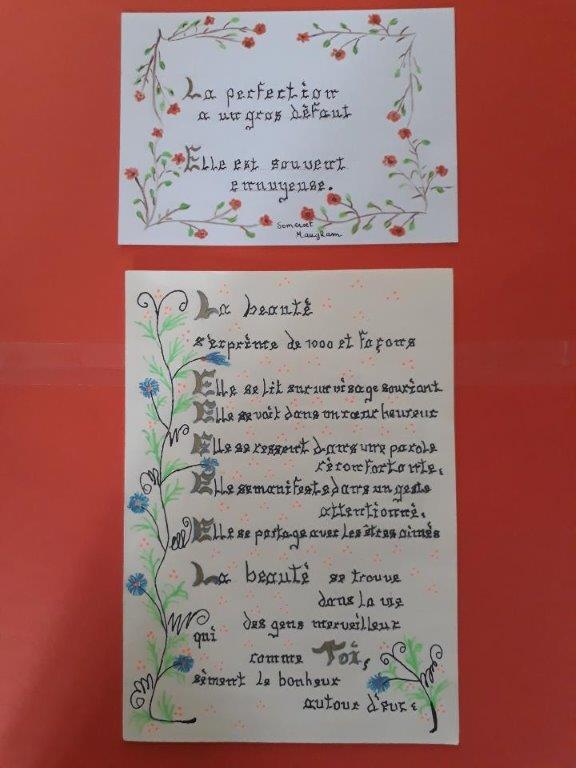 La perfection
a un gros défaut
Elle est souvent
ennuyeuse.
Somerset
Maugham
La beauté
s'exprime de 1000 et façons
Elle se lit sur un visage souriant
Elle se voit dans un cœur heureux
Elle se ressent dans une parole
réconfortante,
Elle se manifeste dans un geste
attentionné,
Elle se partage avec les êtres aimés
La beauté se trouve
dans la vie
des gens merveilleux
qui
comme Toi,
sèment le bonheur
autour d'eux :